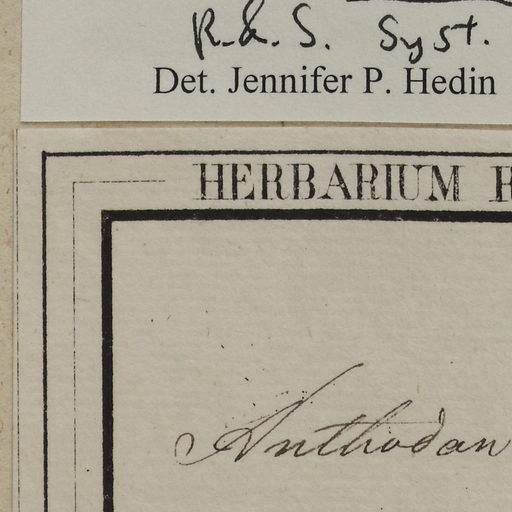 R. & S. Syst.
Det. Jennifer P. Hedin
HERBARIUM
Anthodan